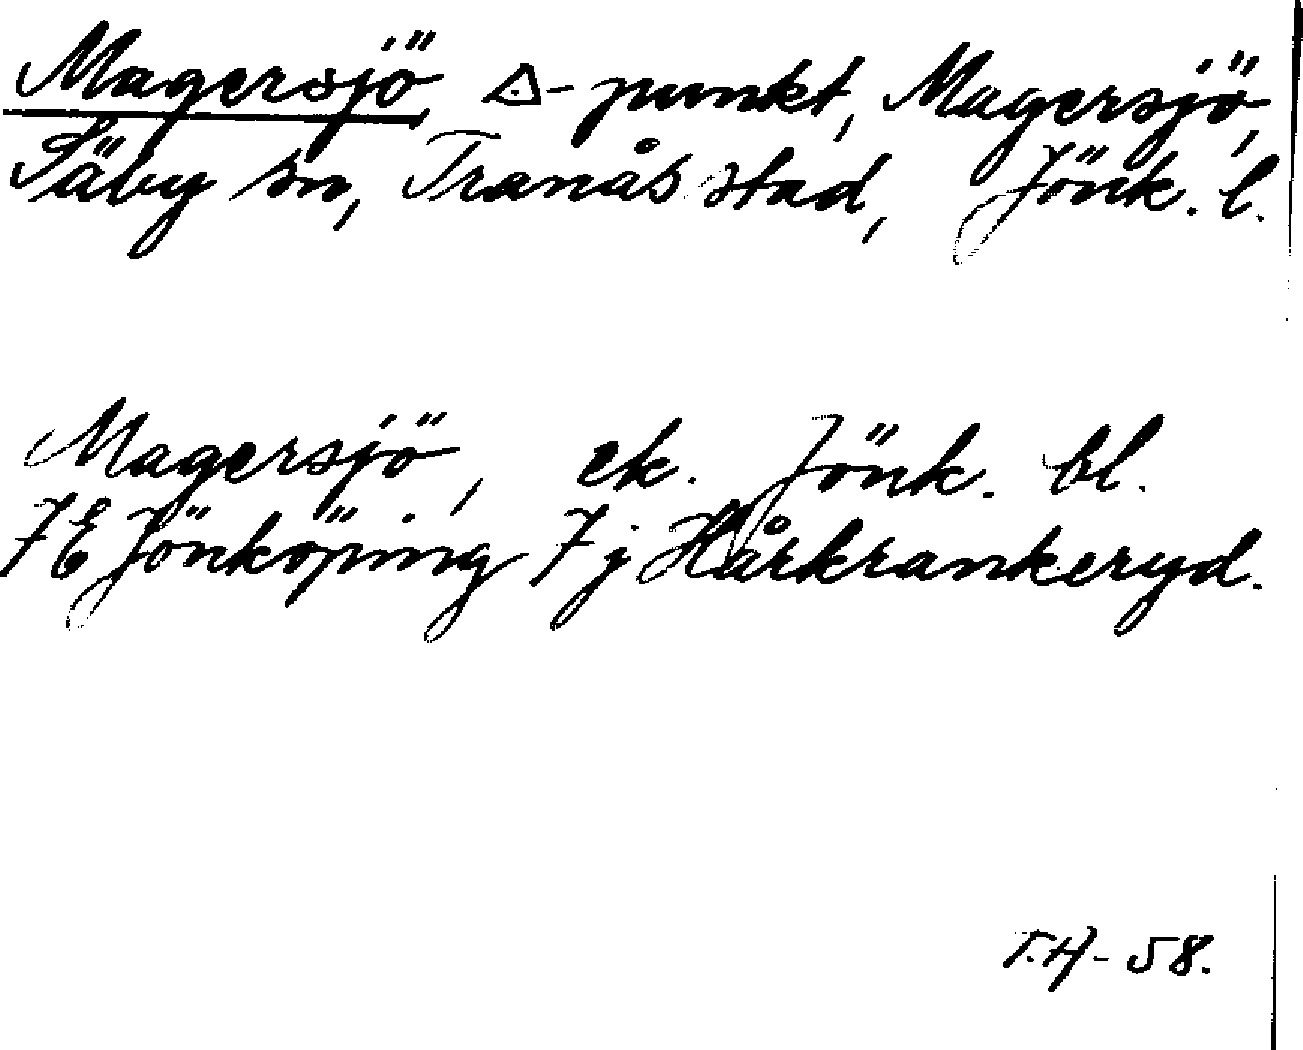 Magersjö, △-punkt, Magersjö,
Säby sn, Tranås stad, Jönk. l.
Magersjö, ek. Jönk. bl.
7E Jönköping 7j Hårkrankeryd.
T.H-58.